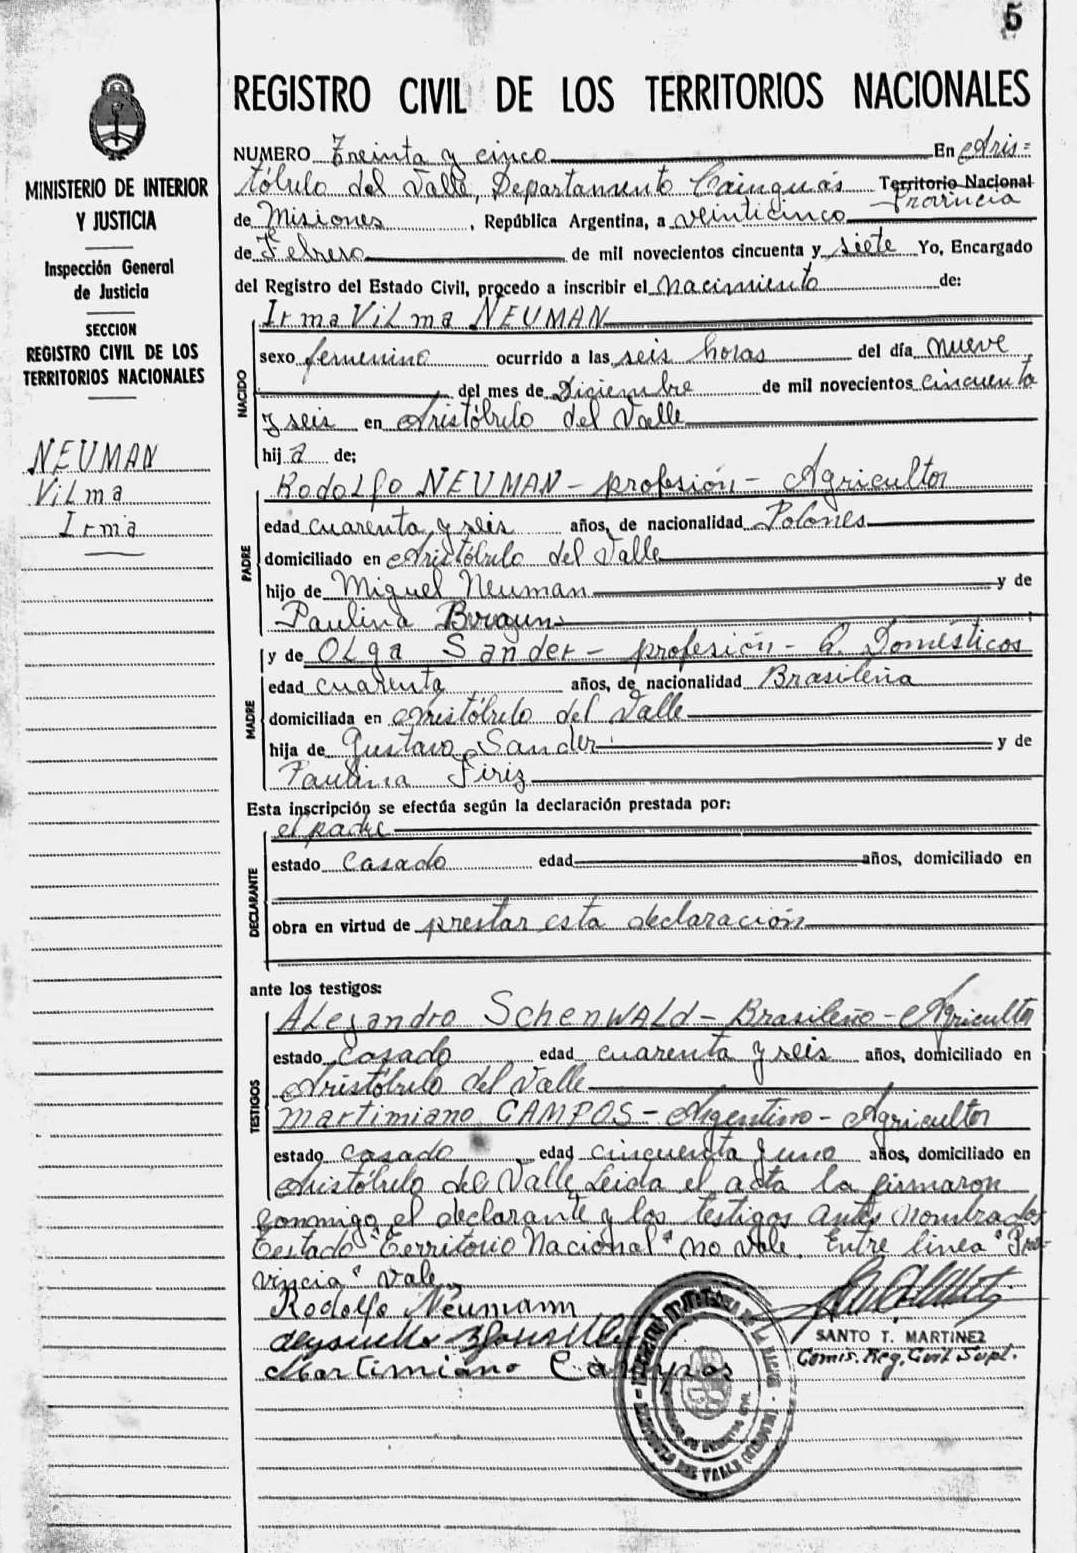 5
REGISTRO CIVIL DE LOS TERRITORIOS NACIONALES
MINISTERIO DE INTERIOR
Y JUSTICIA
Inspección General
de Justicia
SECCION
REGISTRO CIVIL DE LOS
TERRITORIOS NACIONALES
NEUMAN
Vilma
Irma
NUMERO Treinta y cinco En Aris=
tóbulo del Valle, Departamento Cainguás Territorio Nacional
Provincia
de Misiones, República Argentina, a veinticinco
de Febrero de mil novecientos cincuenta y siete Yo, Encargado
del Registro del Estado Civil, procedo a inscribir el nacimiento de:
NACIDO
Irma Vilma NEUMAN
sexo femenino ocurrido a las seis horas del día nueve
del mes de Diciembre de mil novecientos cincuenta
y seis en Aristóbulo del Valle
hija de;
PADRE
Rodolfo NEUMAN - profesión - Agricultor
edad cuarenta y seis años, de nacionalidad Polones
domiciliado en Aristóbulo del Valle
hijo de Miguel Neuman y de
Paulina
MADRE
y de Olga Sander - profesión - Q. Domésticos
edad cuarenta años, de nacionalidad Brasileña
domiciliada en Aristóbulo del Valle
hija de Gustavo Sander y de
Paulina
Esta inscripción se efectúa según la declaración prestada por:
DECLARANTE
el padre
estado casado edad años, domiciliado en
obra en virtud de prestar esta declaración
ante los testigos:
TESTIGOS
Alejandro SchenWALd - Brasileño - Agricultor
estado casado edad cuarenta y seis años, domiciliado en
Aristóbulo del Valle
Martimiano CAMPOS - Argentino - Agricultor
estado casado, edad cincuenta y uno años, domiciliado en
Aristóbulo del Valle Leida el acta la firmaron
conmigo el declarante y los testigos antes nombrados
Testado "Territorio Nacional" no vale. Entre linea "Pro-
vincia" vale
Rodolfo Neumann
Martimiano Campos
SANTO T. MARTINEZ
Comis. Reg. Civil Supl.